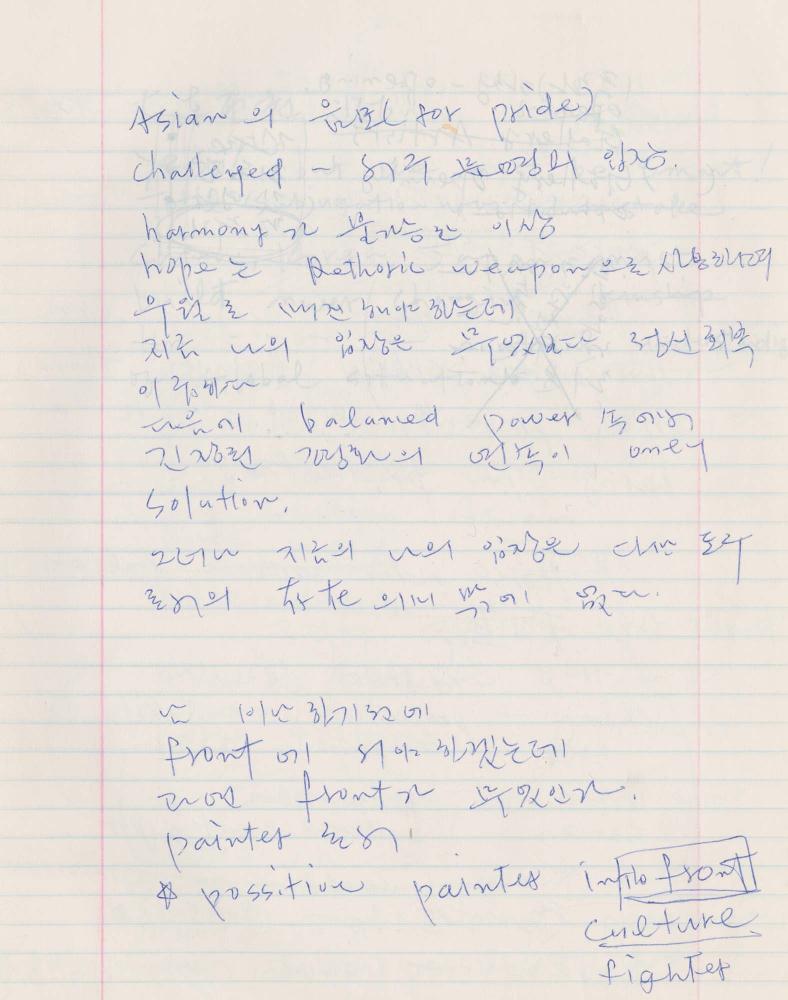 Asian의 음모(for pride)
challenged - 서구 문명의 입장.
harmony가 불가능한 이상
hope는 Rethoric weapon으로 사용하며
우월로 버전해야 하는데
지금 나의 입장은 무엇보다 정신회복
이 급하다
다음에 balanced power 속에서
긴장된 평화의 연속이 only
solution.
그러나 지금의 나의 입장은 다만
로서의 存在 의미 밖에 없다.
남 비난하기 전에
front에 서야 하겠는데
과연 front가 무엇인가.
painter로서
☆ possitive painter into front
culture
fighter